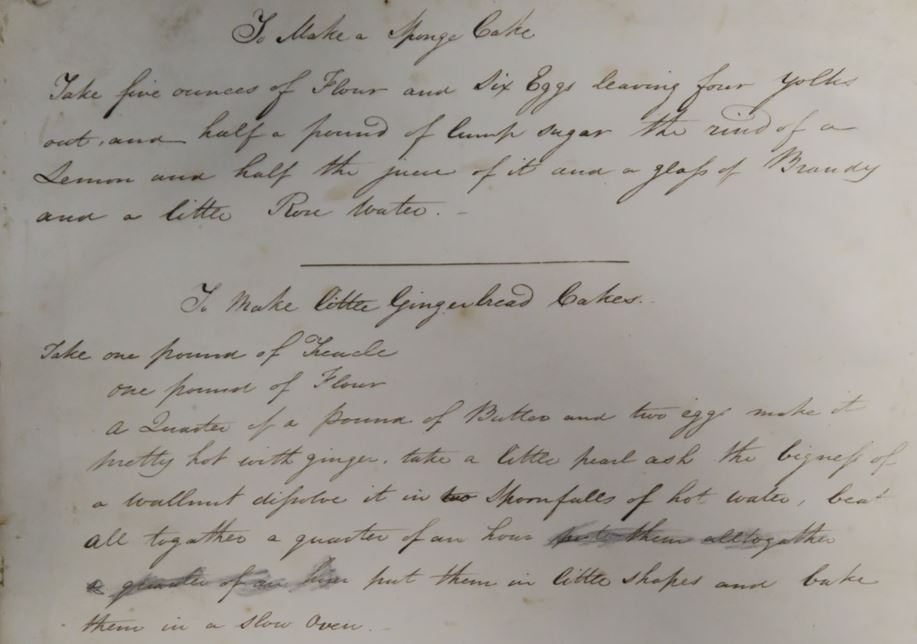 To Make a Sponge Cake
Take five ounces of Flour and Six Eggs leaving four yolks
out, and half a pound of lump sugar the rind of a
Lemon and half the juice of it and a glass of Brandy
and a little Rose Water. -
To Make little Gingerbread Cakes.
Take one pound of Treacle
one pound of Flour
A Quarter of a pound of Butter and two eggs make it
pretty hot with ginger. take a little pearl ash the bigness of
a wallnut dissolve it in two Spoonfulls of hot water, beat
all togather a quarter of an hour put them alltogather
a quarter of an hour put them in little shapes and bake
them in a slow Oven. -